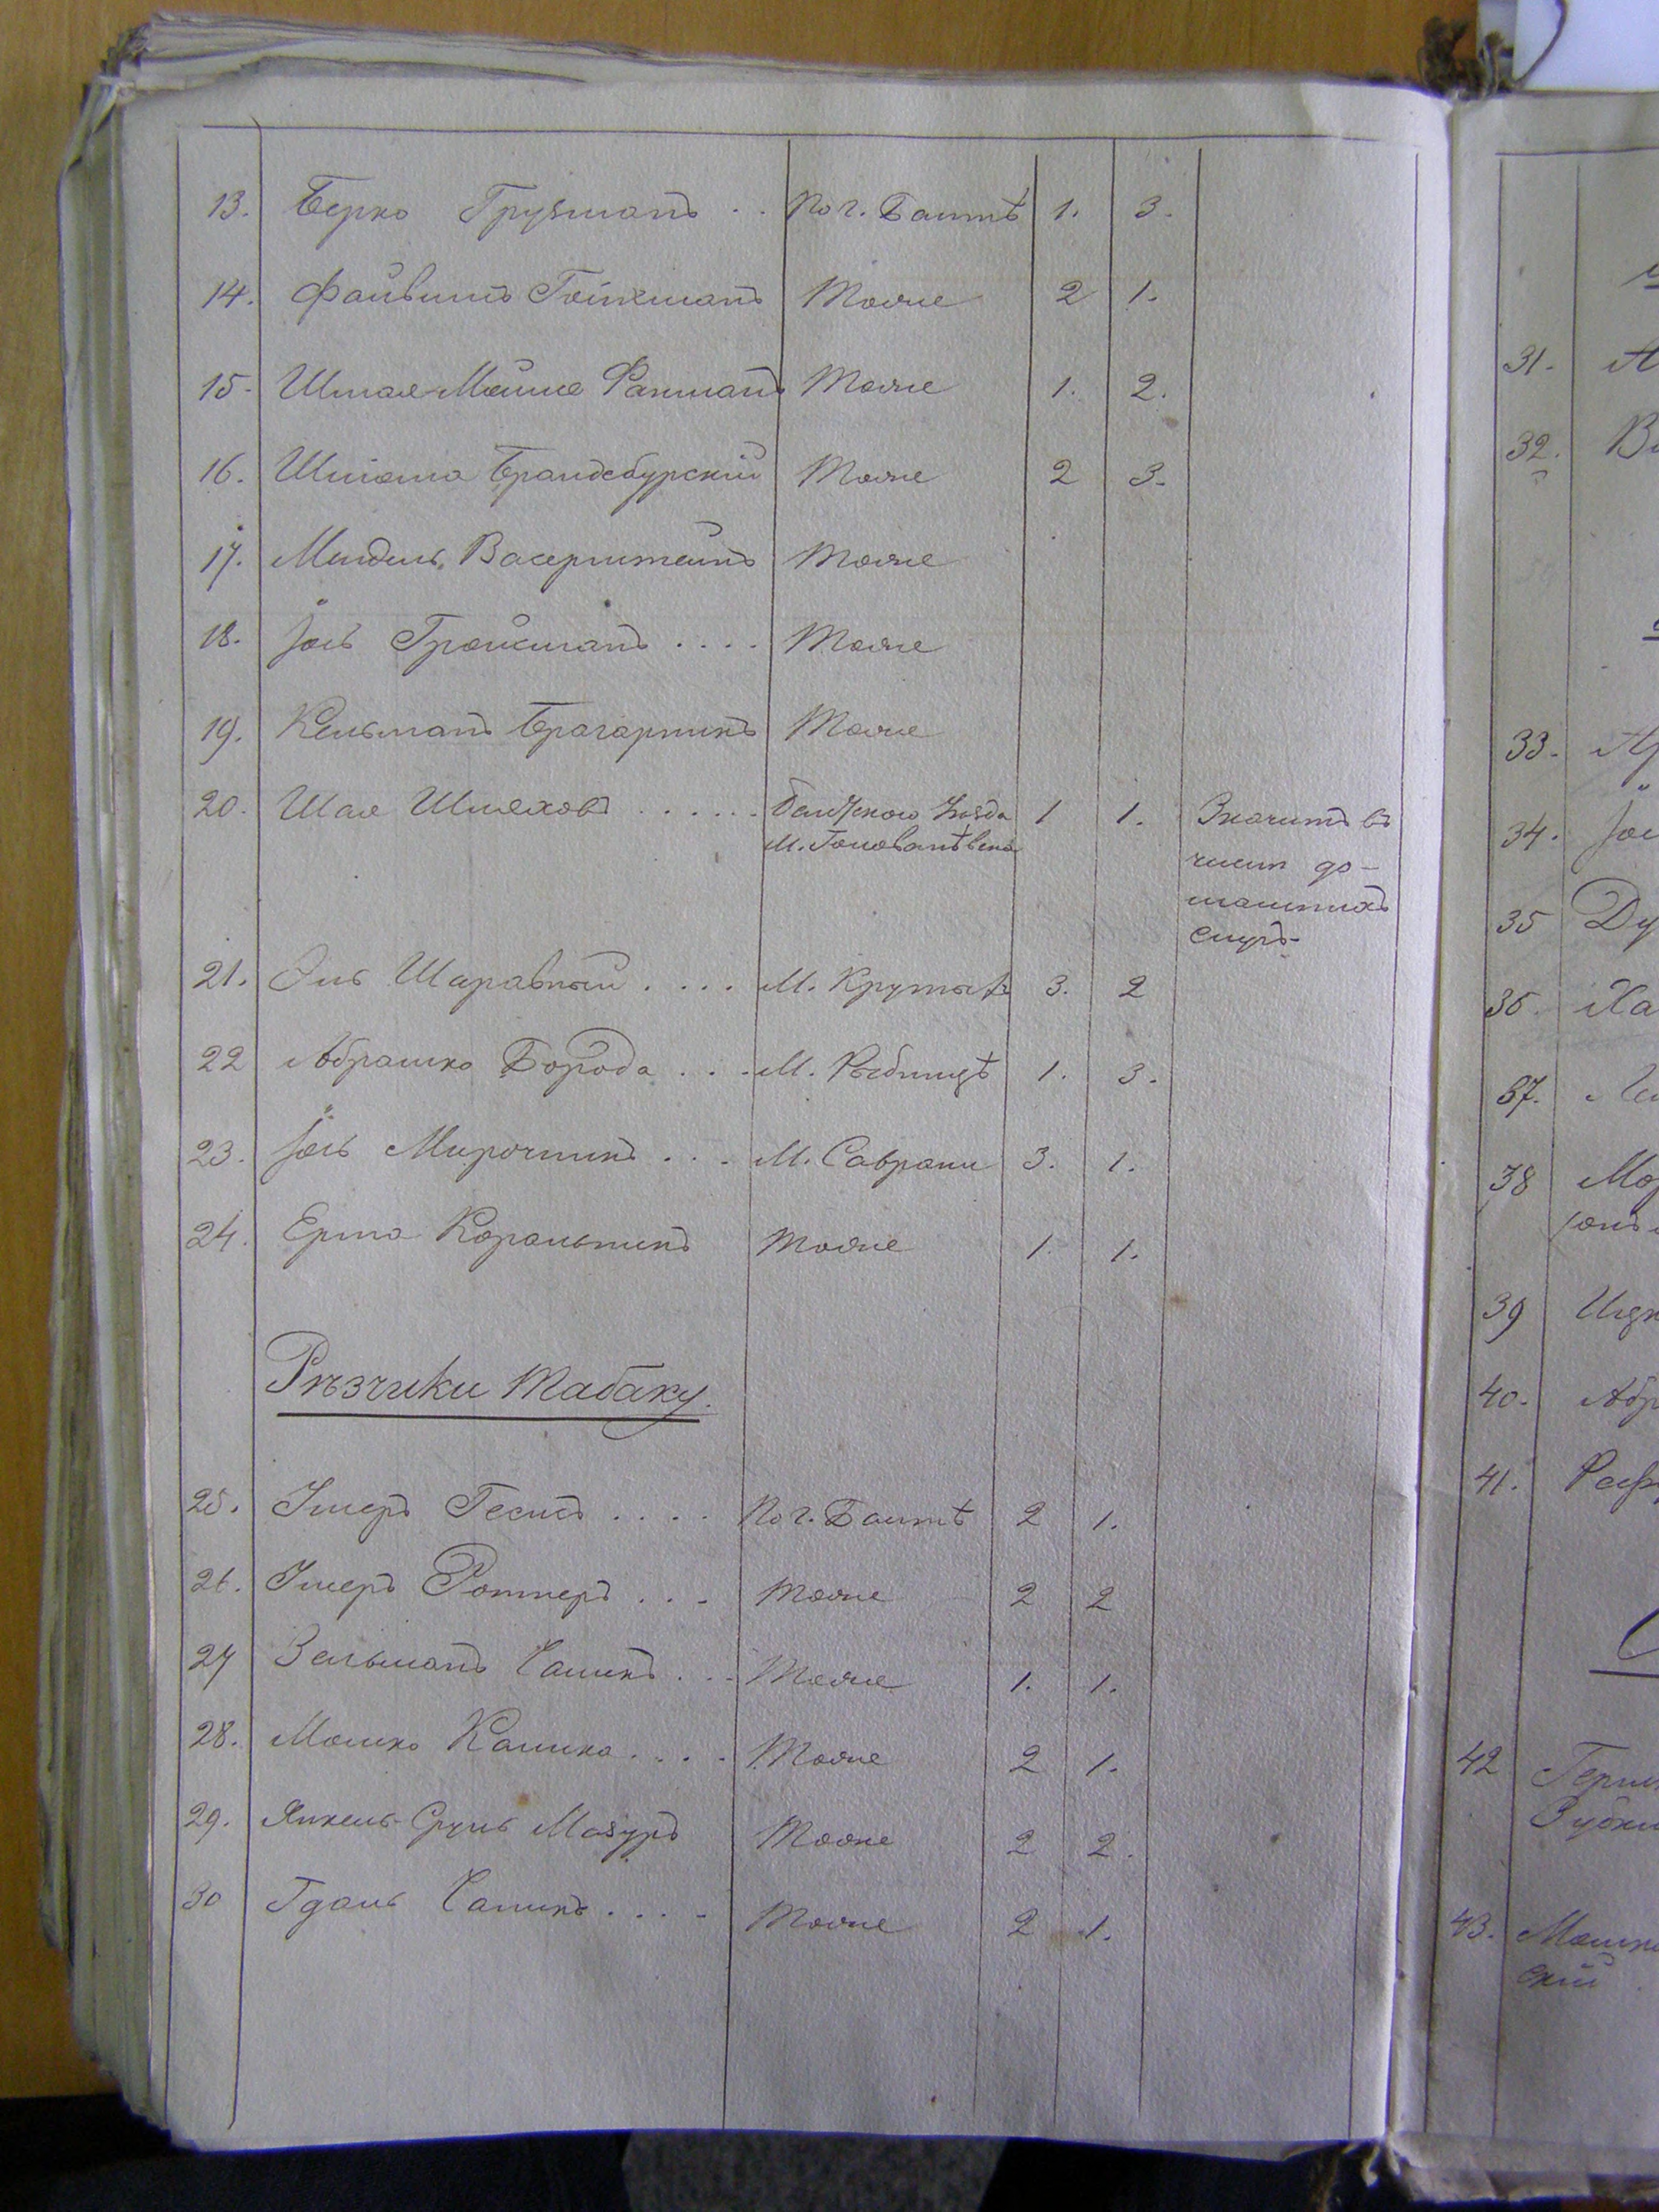 13. Берко Грузманъ . . По г. Балтѣ 1. 3.
14. Файвишъ Гойхманъ Тоже 2 1.
15. Шмая-Мойше Тоже 1. 2.
16. Шліома Брандебурскій Тоже 2 3.
17. Мендель Васерштейнъ Тоже
18. Іось Гройсманъ . . . . Тоже
19. Кельманъ Брагарникъ Тоже
20. Шая Шмеховъ . . . . . . Балтскаго Уѣзда 1 1. Значитъ въ
М. Голованѣвска
числѣ до-
машнихъ
слугъ.
21. Эль Шаравный . . . . М. Крутыхъ 3. 2
22 Абрашко Борода . . . М. Рыбницѣ 1. 3.
23. Іось Мирочникъ . . . М. Саврани 3. 1.
24. Ерма Коральникъ Тоже 1 1.
Рѣзчики табаку.
25. Ушеръ Гесисъ . . . . По г. Балтѣ 2 1.
26. Ушеръ Ротнеръ . . . Тоже 2 2
27 Зельманъ Чапикъ . . . Тоже 1. 1.
28. Мошко Капика . . . . Тоже 2 1.
29. Янкель-Сруль Мазуръ Тоже 2 2.
30 Гдаль Чапикъ . . . . Тоже 2 1.
31. А
32. Ви
33. Ар
34. Іос
35 Ду
36. Ха
37. Ле
38 Мор
39 Ицк
40. Абр
41. Раф
42 Герш
43. Мошк
скій